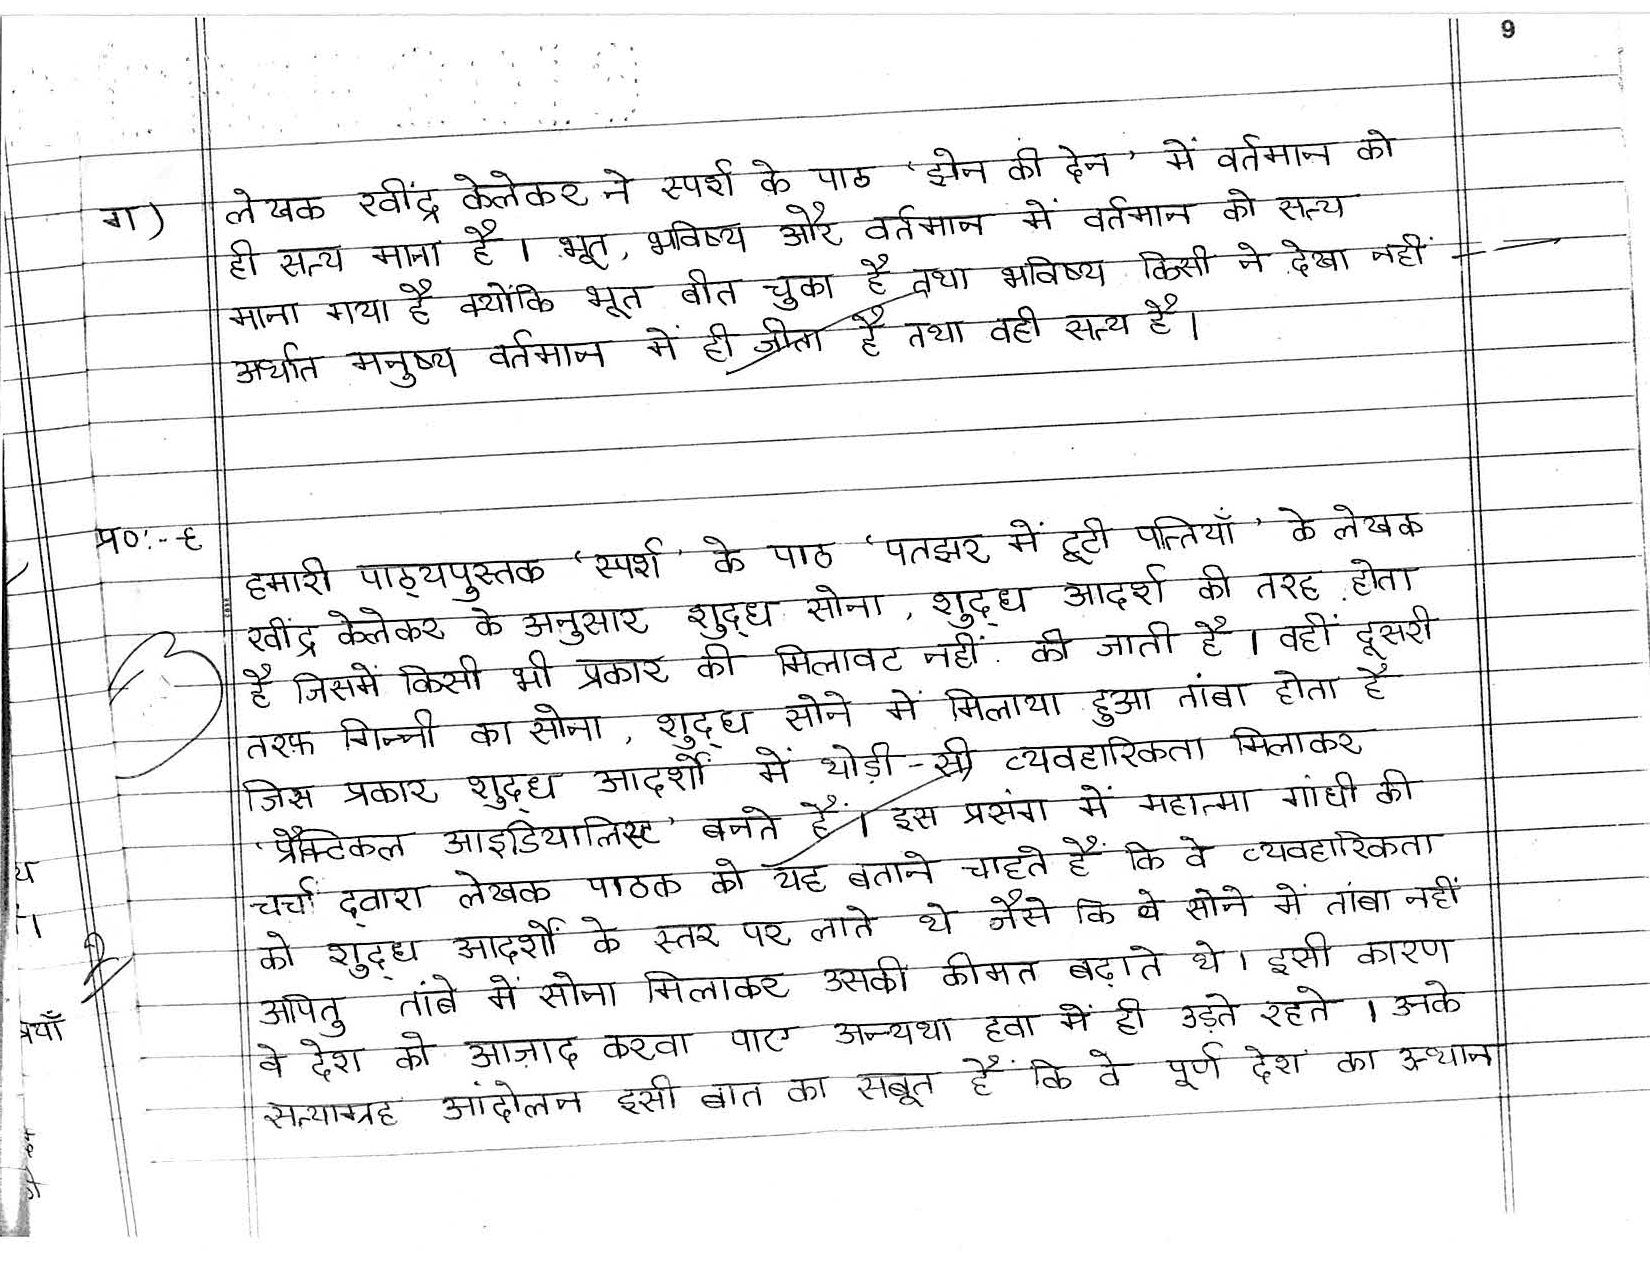 9
ग) लेखक रवींद्र केलेकर ने स्पर्श के पाठ 'झेन की देन' में वर्तमान को
ही सत्य माना है । भूत, भविष्य और वर्तमान में वर्तमान को सत्य
माना गया है क्योंकि भूत बीत चुका है तथा भविष्य किसी ने देखा नहीं
अर्थात मनुष्य वर्तमान में ही जीता है तथा वही सत्य है ।
प्र०:- ६
हमारी पाठ्यपुस्तक 'स्पर्श' के पाठ 'पतझर में टूटी पत्तियाँ' के लेखक
रवींद्र केलेकर के अनुसार शुद्ध सोना, शुद्ध आदर्श की तरह होता
है जिसमें किसी भी प्रकार की मिलावट नहीं की जाती है । वहीं दूसरी
तरफ़ गिन्नी का सोना, शुद्ध सोने में मिलाया हुआ तांबा होता है
जिस प्रकार शुद्ध आदर्शों में थोड़ी-सी व्यवहारिकता मिलाकर
'प्रैक्टिकल आइडियालिस्ट' बनते हैं । इस प्रसंग में महात्मा गांधी की
चर्चा द्वारा लेखक पाठक को यह बताने चाहते हैं कि वे व्यवहारिकता
को शुद्ध आदर्शों के स्तर पर लाते थे जैसे कि वे सोने में तांबा नहीं
अपितु तांबे में सोना मिलाकर उसकी कीमत बढ़ाते थे । इसी कारण
वे देश को आज़ाद करवा पाए अन्यथा हवा में ही उड़ते रहते । उनके
सत्याग्रह आंदोलन इसी बात का सबूत हैं कि वे पूर्ण देश का उत्थान
3
2